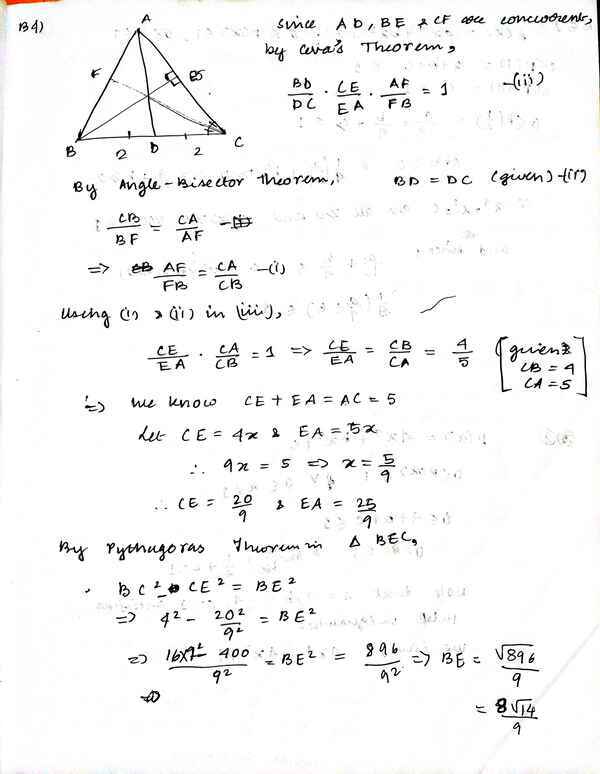 B4)
A
F
E
B
2
D
2
C
Since AD, BE & CF are concurrent,
by Ceva's Theorem,
BD/DC · CE/EA · AF/FB = 1 —(iii)
By Angle-Bisector Theorem, BD = DC (given) —(ii)
CB/BF = CA/AF
=> AF/FB = CA/CB —(i)
Using (i) & (ii) in (iii),
CE/EA · CA/CB = 1 => CE/EA = CB/CA = 4/5 [given CB = 4 CA = 5]
=> We know CE + EA = AC = 5
Let CE = 4x & EA = 5x
∴ 9x = 5 => x = 5/9
∴ CE = 20/9 & EA = 25/9
By Pythagoras Theorem in Δ BEC,
BC² - CE² = BE²
=> 4² - 20²/9² = BE²
=> 16×9² - 400/9² = BE² = 896/9² => BE = √896/9
= 8√14/9